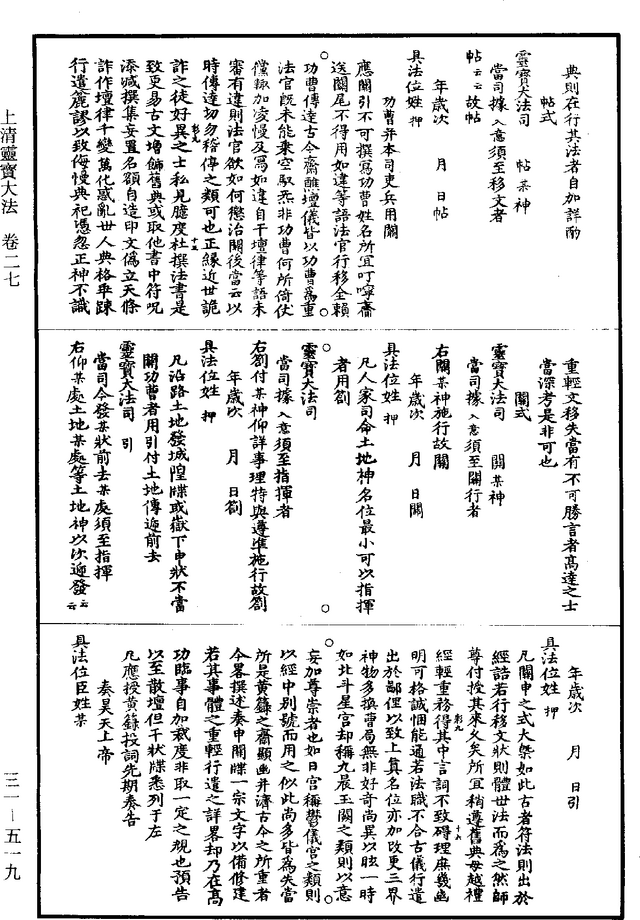 典則在行其法者自加詳酌
帖式
靈寶大法司 帖某神
當司據入意須至移文者
帖云云故帖
年歲次 月 日帖
具法位姓 押
功曹并本司吏兵用關
應關引不可撰寫功曹姓名所宜叮嚀齎
送關尾不得用如違等語法官行移全賴
功曹傳達古今齋醮壇儀皆以功曹爲重
法官旣未能乘空馭炁非功曹何所倚仗
儻輒加凌慢及寫如違自干壇律等語未
審有違則法官欲如何懲治關後當云以
時傳達切勿稽停之類可也正緣近世詭
詐之徒好異之士私見臆度杜撰法書是
致更易古文增飾舊典或取他書中符呪
添減撰集妄置名額自造印文僞立天條
詐作壇律千變萬化惑亂世人典格乖踈
行遣麄謬以致侮慢典祀憑忽正神不識
重輕文移失當有不可勝言者髙達之士
當深考是非可也
關式
靈寶大法司 關某神
當司據入意須至關行者
右關某神施行故關
年歲次 月 日關
具法位姓 押
凡人家司命土地神名位最小可以指揮
者用劄
靈寶大法司
當司據入意須至指揮者
右劄付某神仰詳事理特與遵凖施行故劄
年歲次 月 日劄
具法位姓 押
凡沿路土地發城隍牒或嶽下申狀不當
關功曹者用引付土地傳逓前去
靈寶大法司 引
當司今發某狀前去某處須至指揮
右仰某處土地某處等土地神以次逓發云云
年歲次 月 日引
具法位姓 押
凡關申之式大槩如此古者符法則出於
經誥若行移文狀則體世法而爲之然師
尊付授其來久矣所宜稍遵舊典毋越禮
經輕重務得其中言詞不致碍理庶幾幽
明可格誠悃能通若法職不合古儀行遣
出於鄙俚以致上眞名位亦加改更三界
神物多撰曹局無非好奇尚異以眩一時
如北斗星宫却稱九晨玉關之類則以意
妄加尊崇者也如日宫稱鬱儀宫之類則
以經中别號而用之似此尚多皆爲失當
所是黄籙之齋顯幽并濟古今之所重者
今畧撰述奏申關牒一宗文字以備修建
若其事體之重輕行遣之詳畧却乃在髙
功臨事自加裁度非取一定之規也預告
以至散壇但干狀牒悉列于左
凡應授黄籙投詞先期奏告
奏昊天上帝
具法位臣姓某
上清靈寶大法 卷二七
三一—五一九